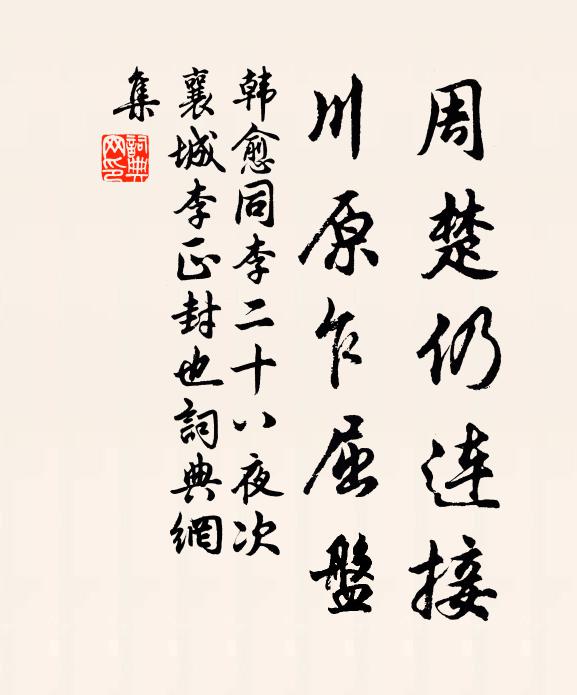 周楚仍连接
川原乍屈盤
韩愈同李二十八夜次
襄城李正封也詞典網
集
詞典網印